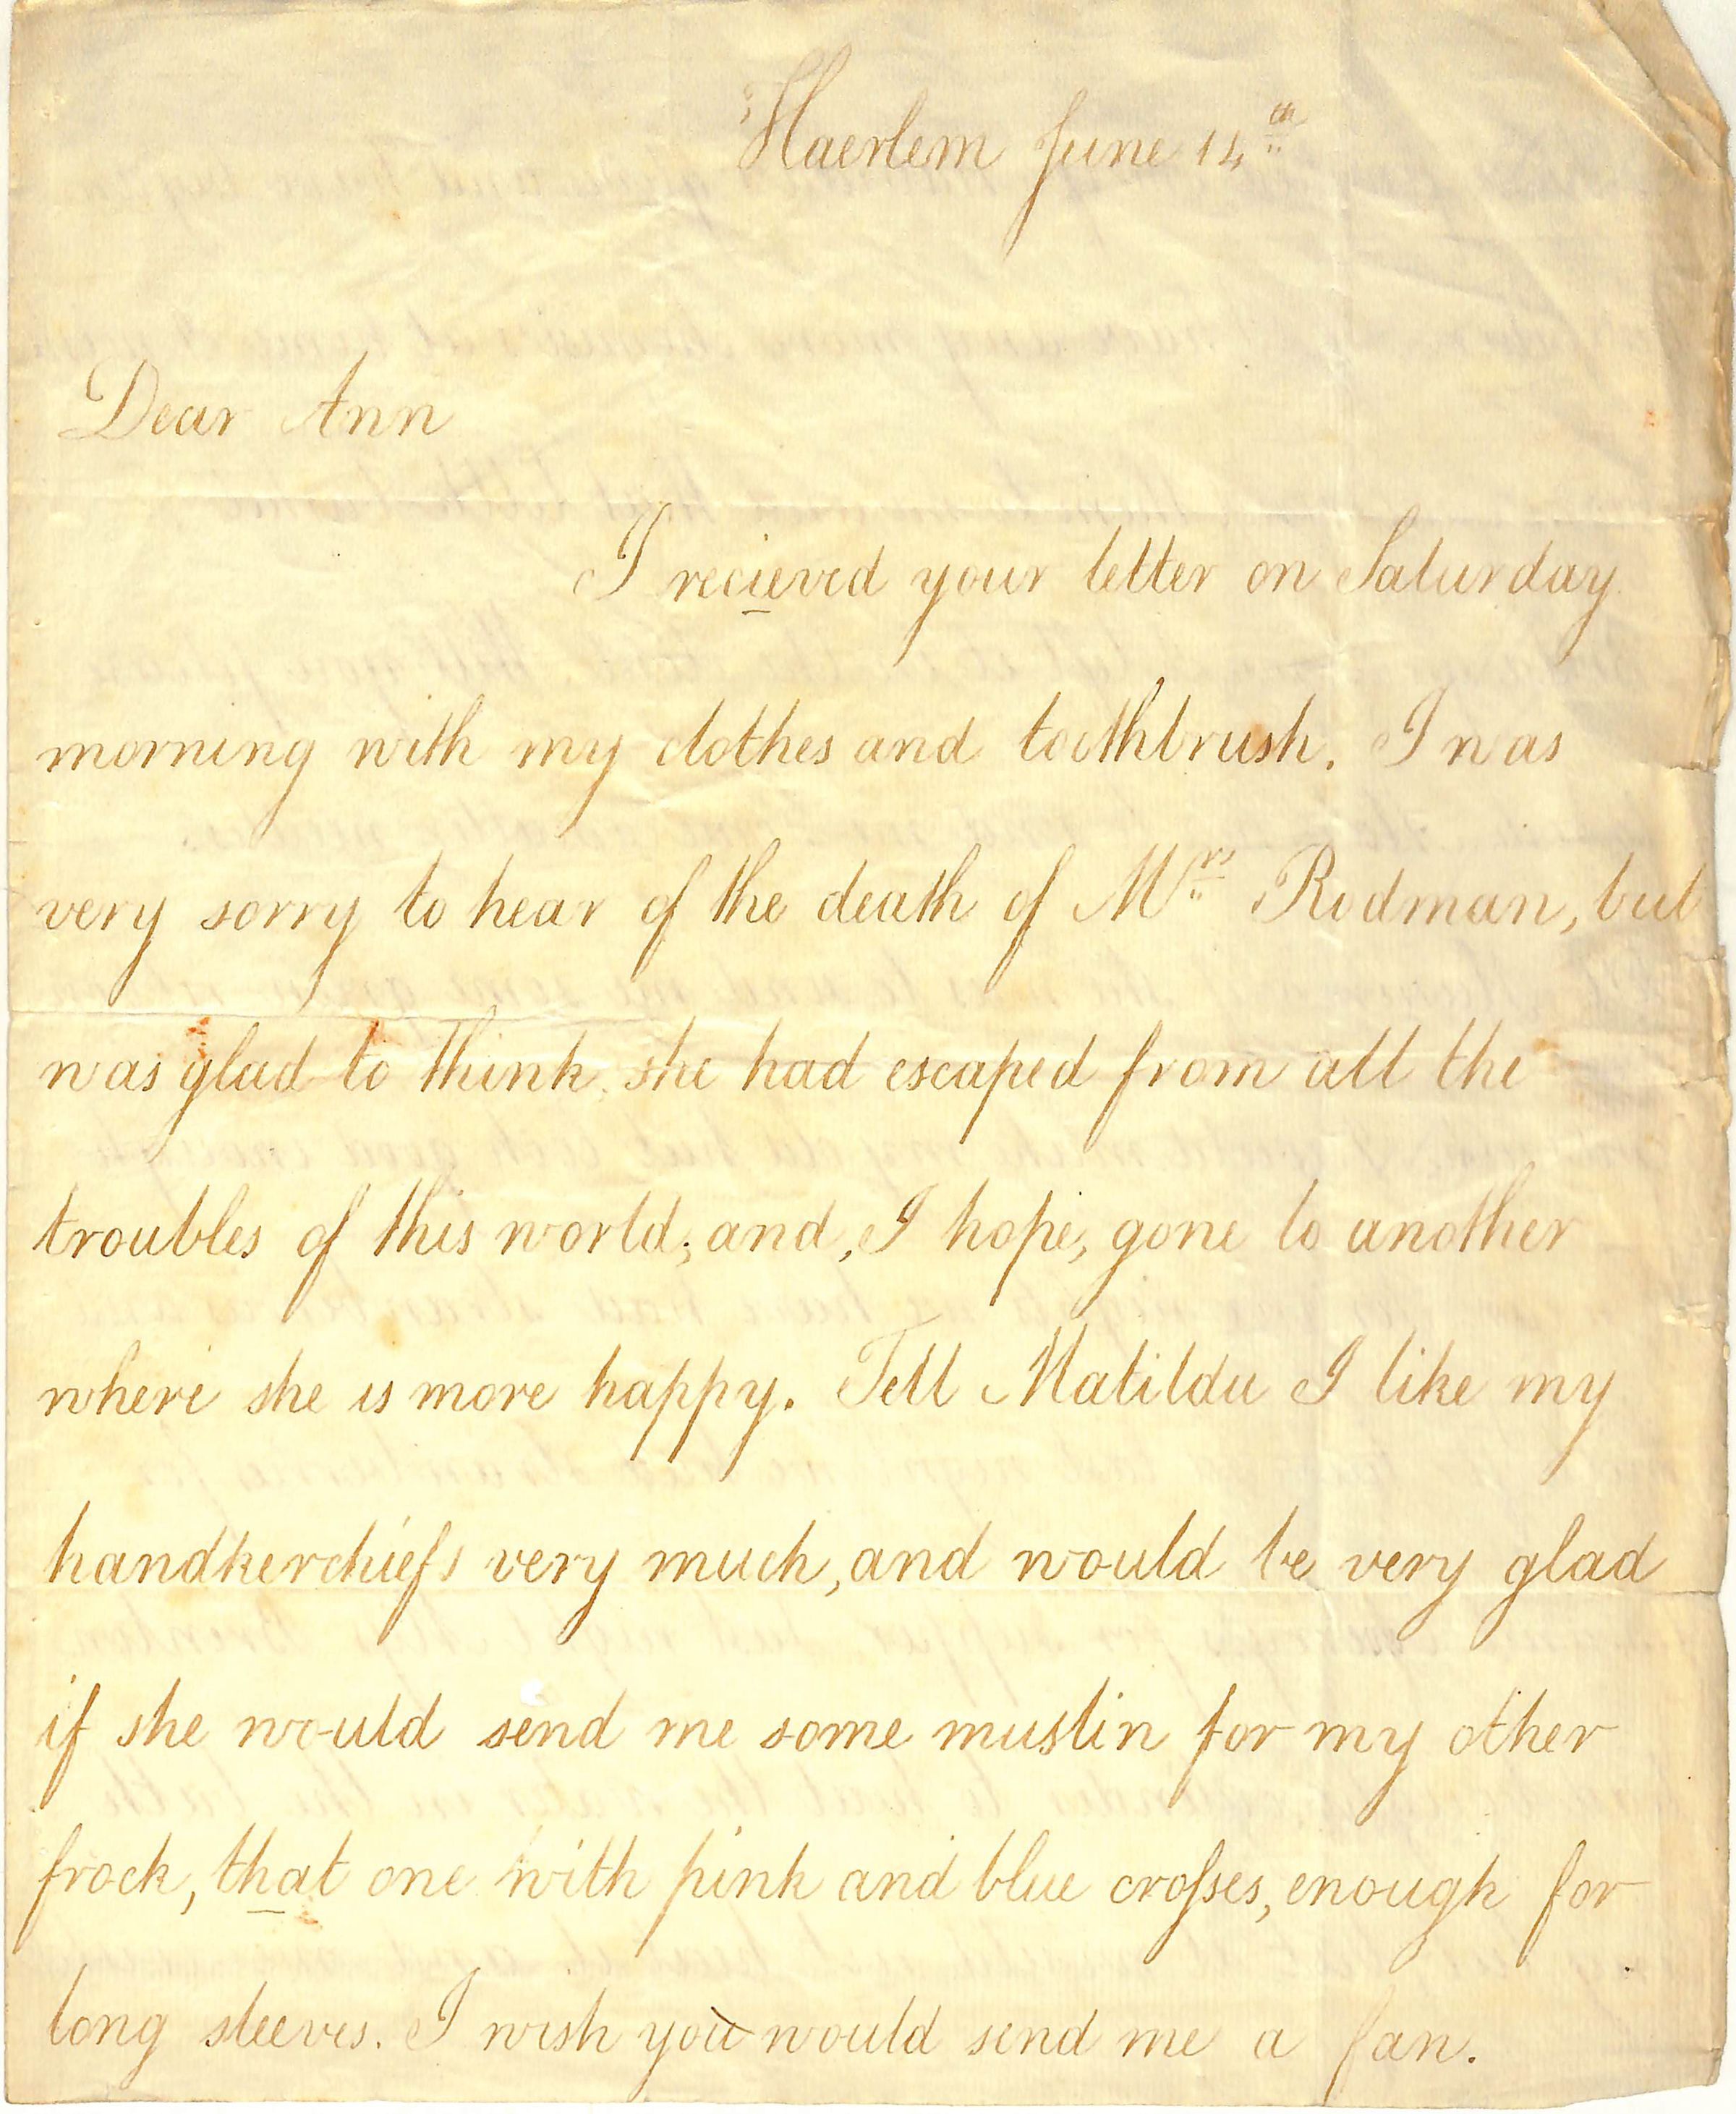 Haerlem June 14th
Dear Ann
I recieved your letter on Saturday
morning with my clothes and toothbrush. I was
very sorry to hear of the death of Mrs Rodman, but
was glad to think she had escaped from all the
troubles of this world; and, I hope, gone to another
where she is more happy. Tell Matilda I like my
handkerchiefs very much, and would be very glad
if she would send me some muslin for my other
frock, that one with pink and blue croſses, enough for
long sleeves. I wish you would send me a fan.